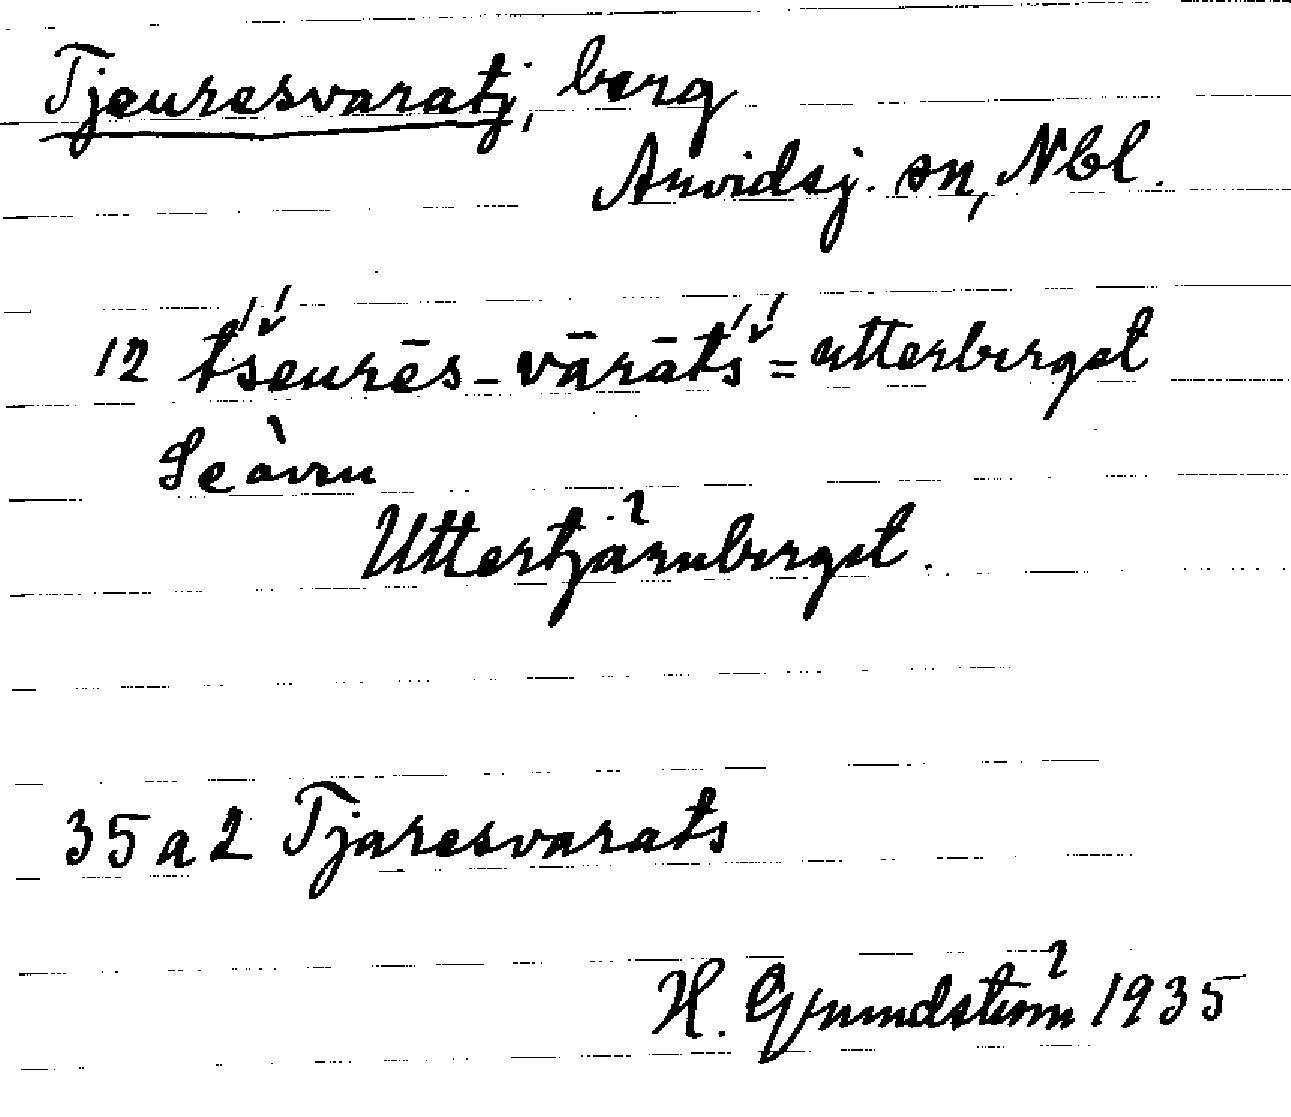 Tjeuresvaratj, berg
Arvidsj. sn, Nbl.
12 tśeurēs-vārāts̀́ = utterberget
Se àvru
Uttertjärnberget.
35 a 2 Tjaresvarats
H. Grundström 1935